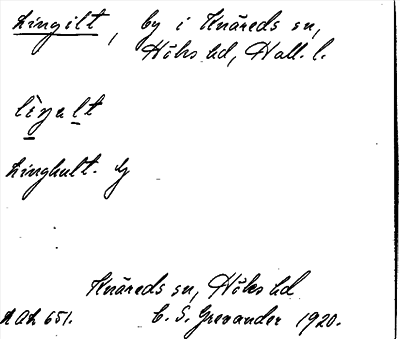 Lingilt, by i Knäreds sn,
Höks hd, Hall. l.
lìŋalt
Linghult. by
Knäreds sn, Höks hd
AOL 651. C. S. Grevander 1920.